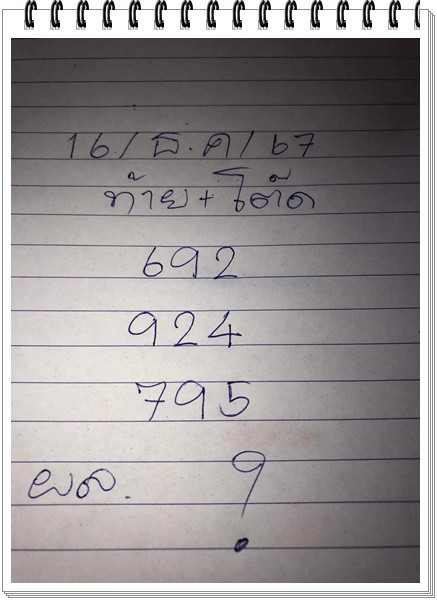 16/ธ.ค/67
ท้าย+โต๊ด
692
924
795
ผล. ?